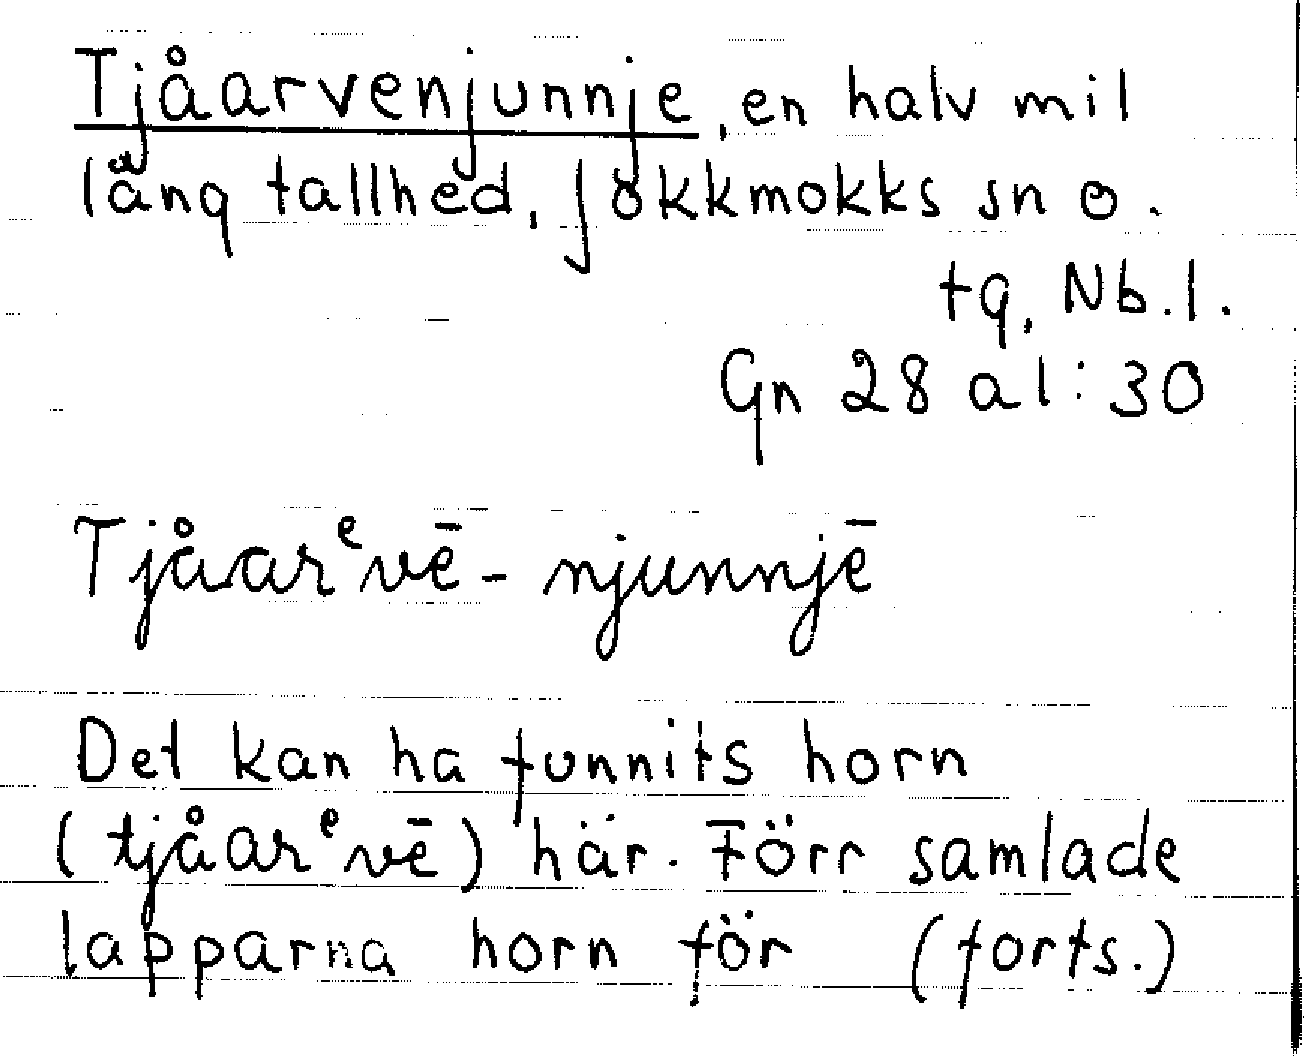 Tjåarvenjunnje, en halv mil
lång tallhed, Jokkmokks sn o.
tg, Nb.l.
Gn 28 a1:30
Tjåarᵉvē-njunnjē
Det kan ha funnits horn
(tjåarᵉvē) här. Förr samlade
lapparna horn för (forts.)